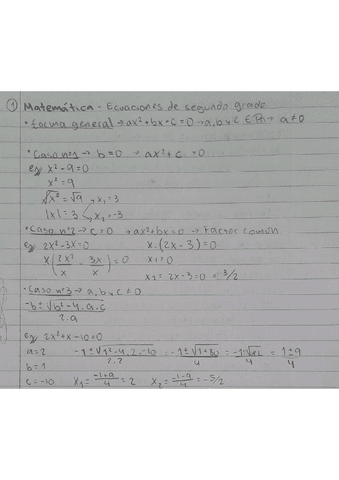 ① Matemática - Ecuaciones de segundo grado
• Forma general → ax²+bx+c=0 → a,b y c ∈ ℝ → a≠0
• Caso nº1 → b=0 → ax²+c=0
ej x²-9=0
x²=9
√x² = √9 → x₁=3
|x|=3 → x₂=-3
• Caso nº2 → c=0 → ax²+bx=0 → Factor común
ej 2x²-3x=0 x.(2x-3)=0
x(2x²/x - 3x/x)=0 x₁=0
x₂= 2x-3=0 = 3/2
• Caso nº3 → a,b,c ≠0
-b±√b²-4.a.c / 2.a
ej 2x²+x-10=0
a=2 -1±√1²-4.2.-10 / 2.2 = -1±√1+80 / 4 = -1±√81 / 4 = 1±9 / 4
b=1
c=-10 x₁= -1+9 / 4 = 2 x₂= -1-9 / 4 = -5/2